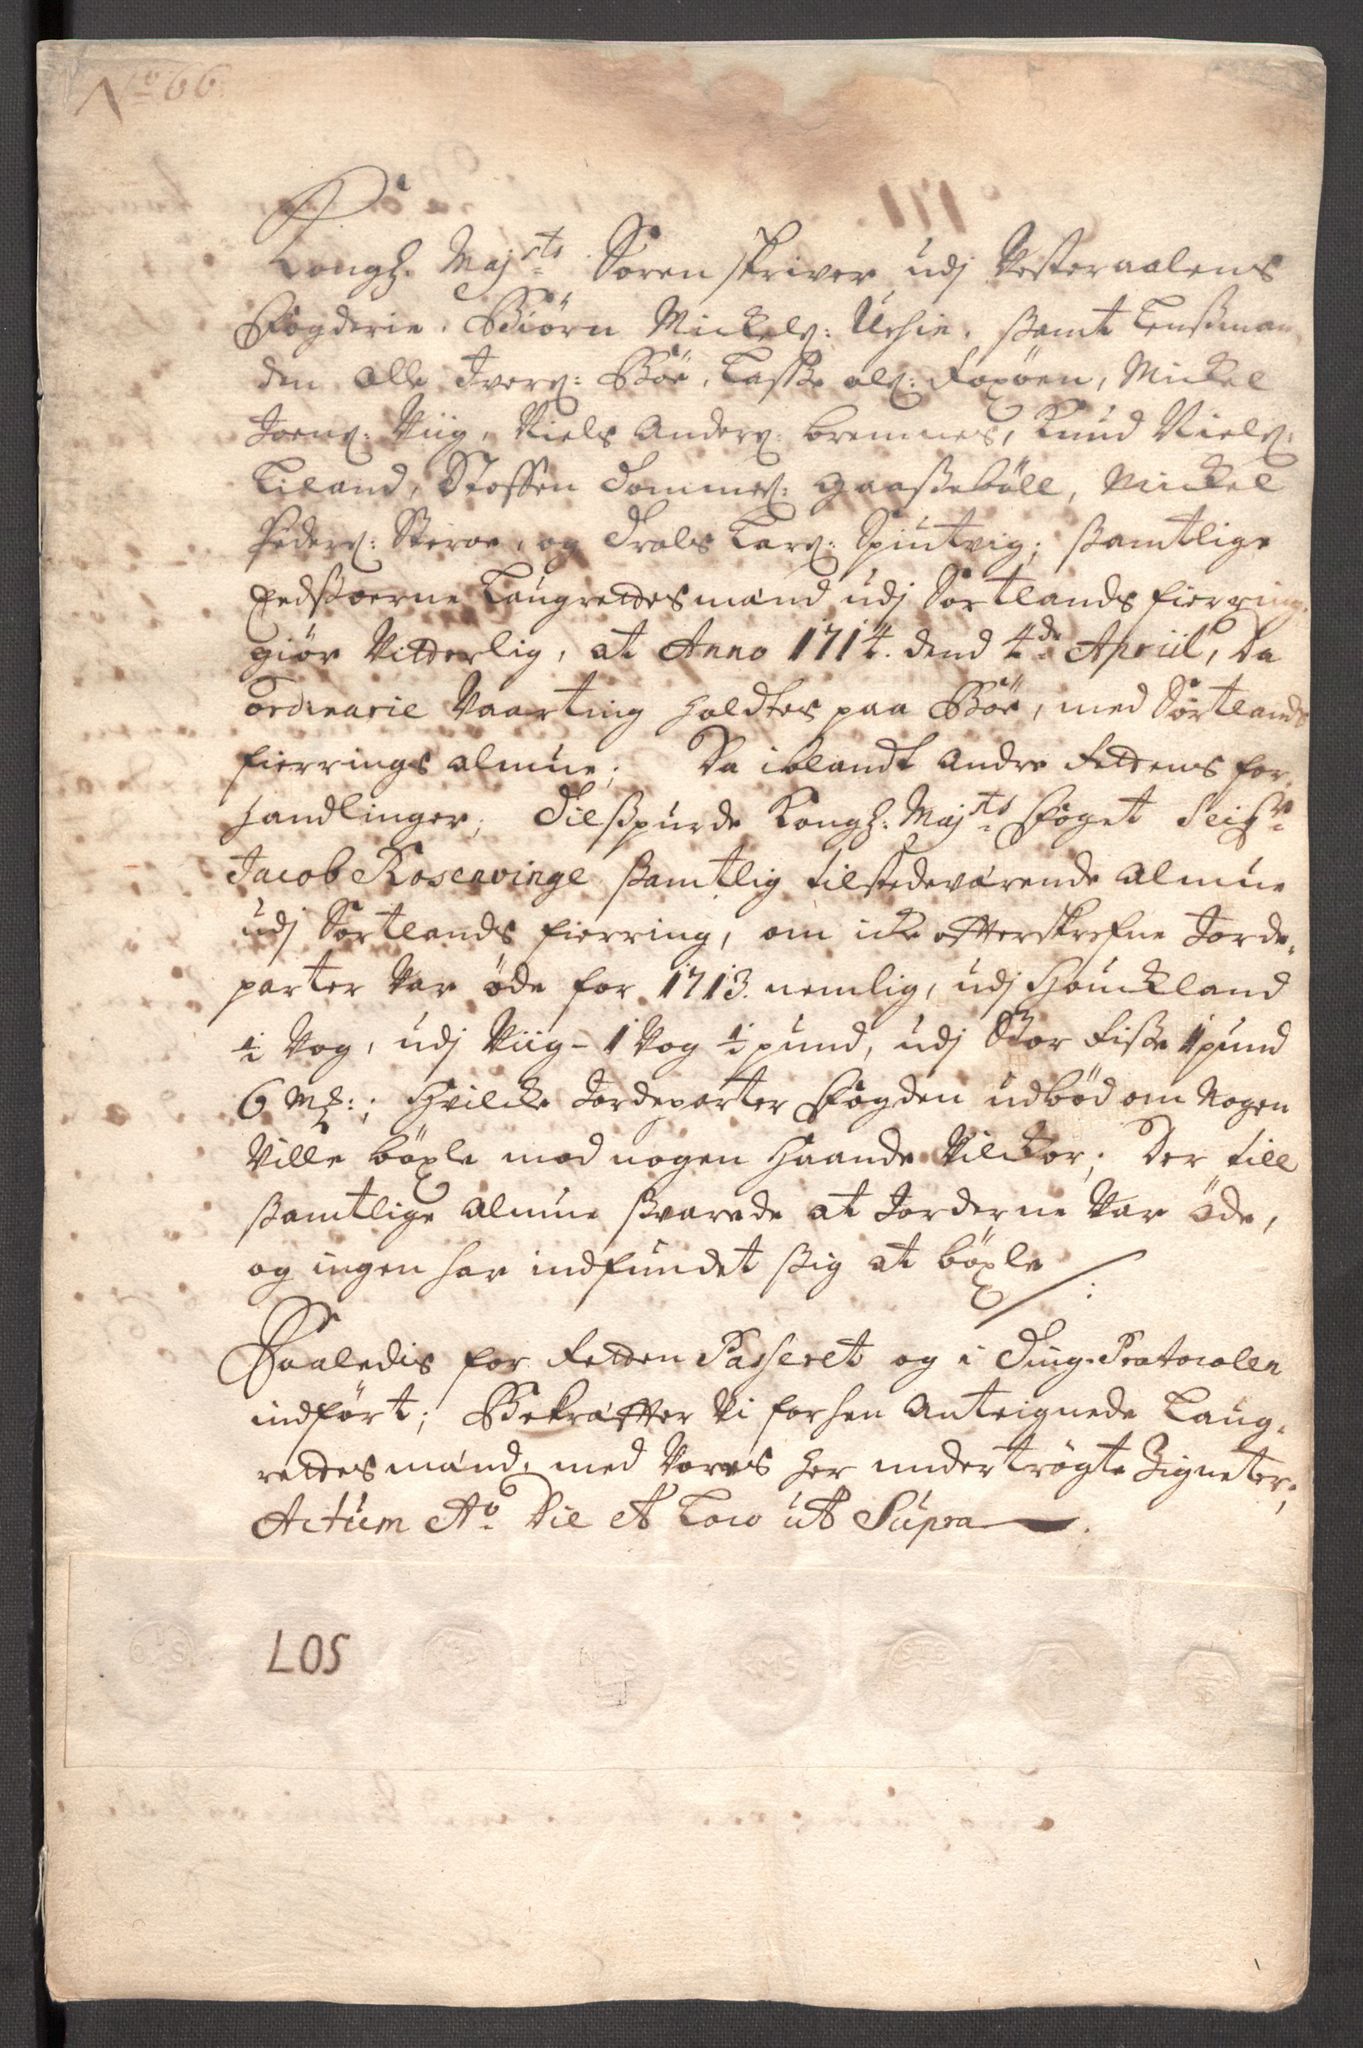 No 66.
Kongh. Majsts Sorenskriver udj Vesteraalens
Fogderie, Biørn Mickels: Urhin, samt Lensman
den Olle Ivers: Böe, Lasse Ols: Foxöen, Mickel
Joens: Viig, Niels Anders: Bremnes, Knud Niels:
Liland, Stoffen Tommes: Gaassebøll, Mickel
Peders: Steroe, og Trols Lars: Spiutvig; samtlige
Eedsvorne Laugrettesmænd udj Sortlands fierring,
giør Vitterlig, at Anno 1714. dend 4de Apriil, Da
ordinarie Vaarting holdtes paa Böe, med Sortlands
fierrings almue; Da iblandt andre Rettens for
handlinger, Tilspurde Kongh: Majsts Foget Seigr
Jacob Rosenvinge samtlig tilstedeværende almue
udj Sortlands fierring, om icke efterskrefne Jorde-
parter var øde for 1713. nemlig, udj Houckland
½ Vog, udj Viig - 1 Vog ½ pund, udj Stor Fisse 1 pund
6 mk:; Hvilcke Jordeparter Fogden udbød om Nogen
Ville böxle med nogen haande Vilckor; Der till
samtlige almue svarede at Jorderne var öde,
og ingen har indfundet sig at böxle /:
Saaledis for Retten Passeret og i Ting-Protocolen
indført; Bekræfter Vi forhen anteignede Laug-
rettesmænd, med Vores her undertrögte Zigneter,
Actum Ao Die et Loco ut Supra
LOS
NOS
MS
STS